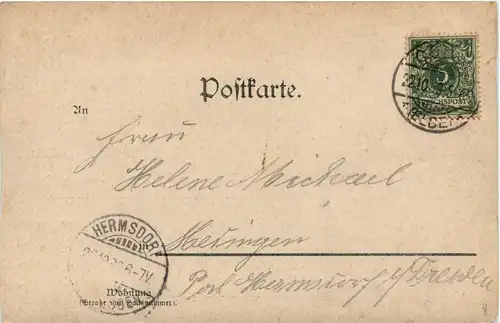 Postkarte.
5
REICHSPOST
An
Frau
Helene Michael
HERMSDORF
6-7V.
in
Post Hermsdorf b/Dresden
Wohnung
(Straße und Hausnummer).